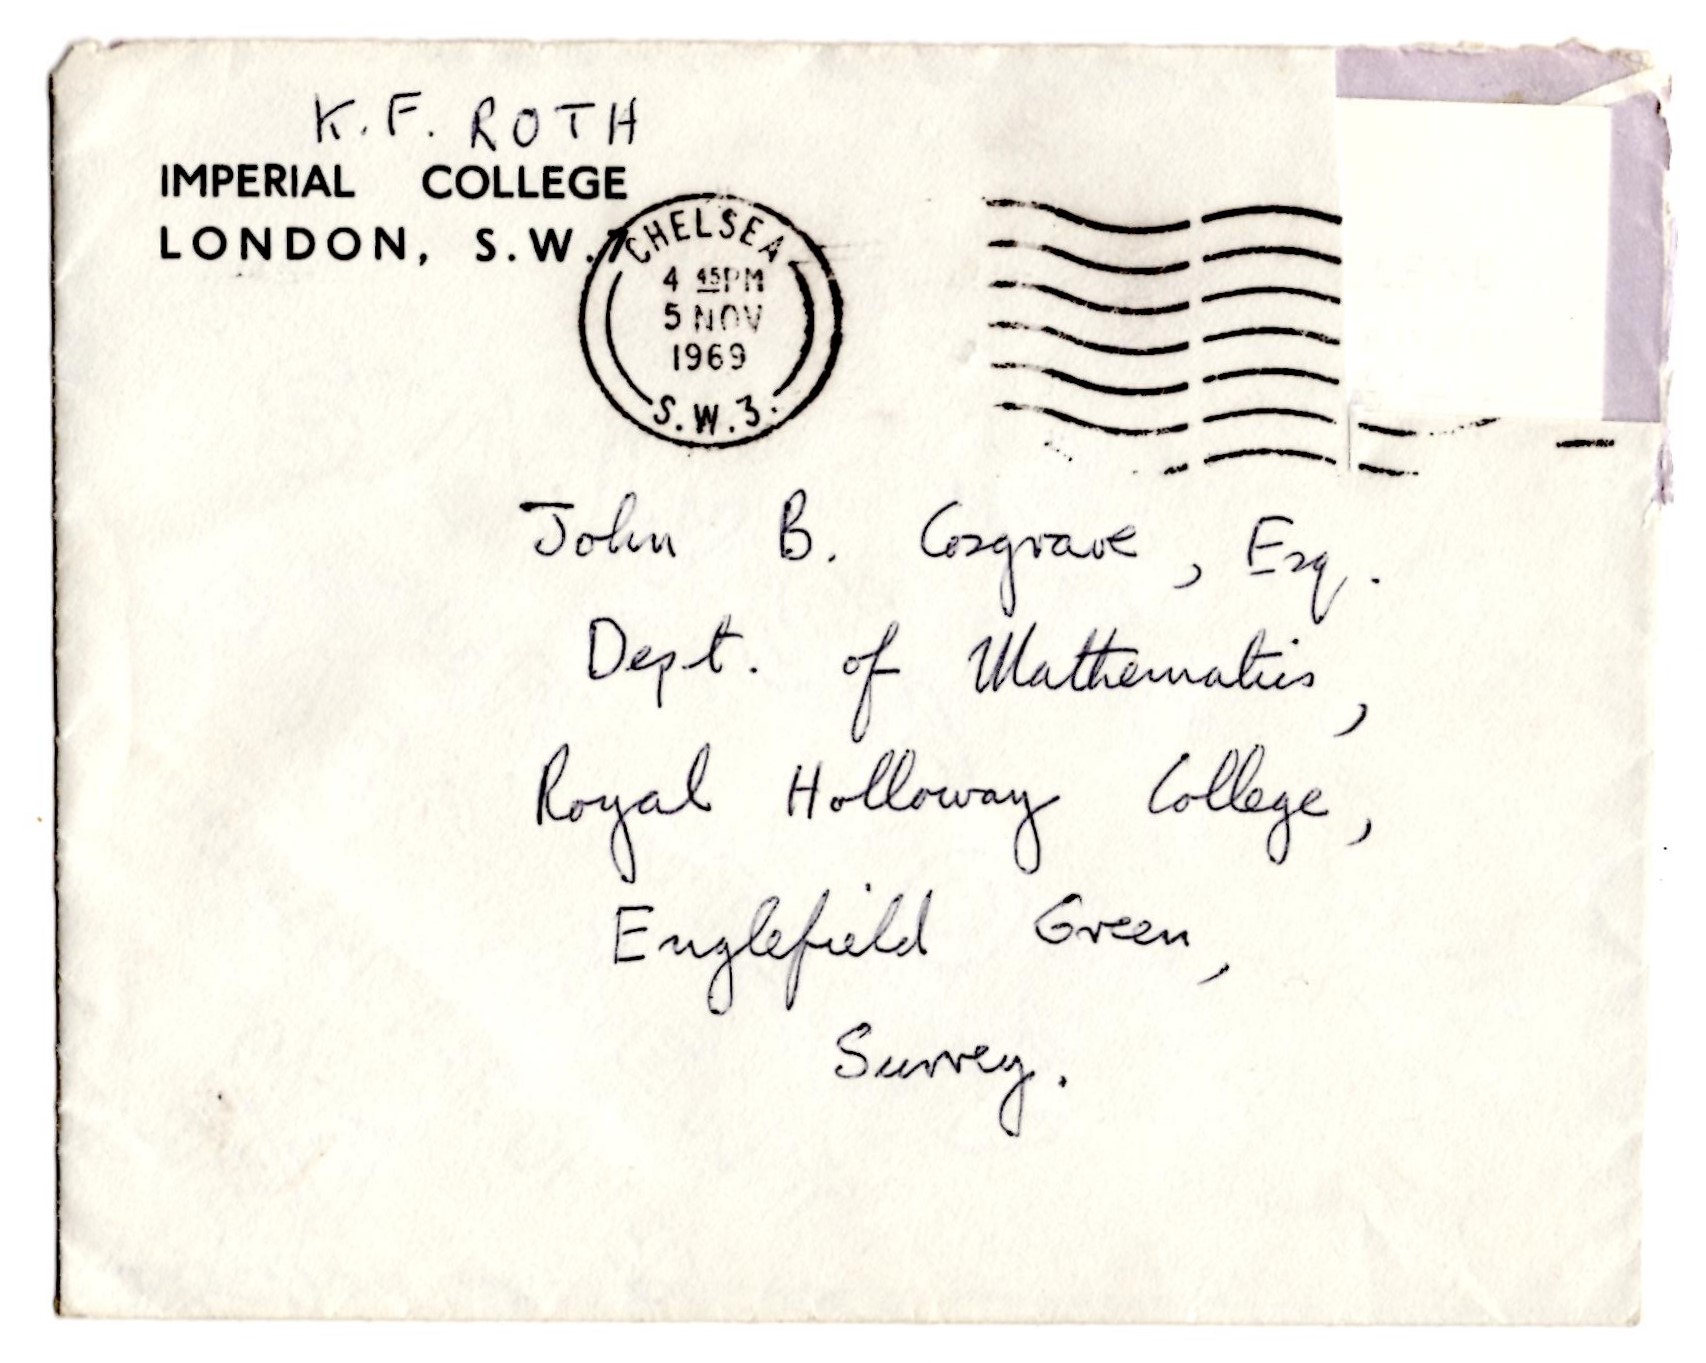 K. F. ROTH
IMPERIAL COLLEGE
LONDON, S.W.7
CHELSEA
4 45PM
5 NOV
1969
S.W.3.
John B. Cosgrave, Esq.
Dept. of Mathematics,
Royal Holloway College,
Englefield Green,
Surrey.